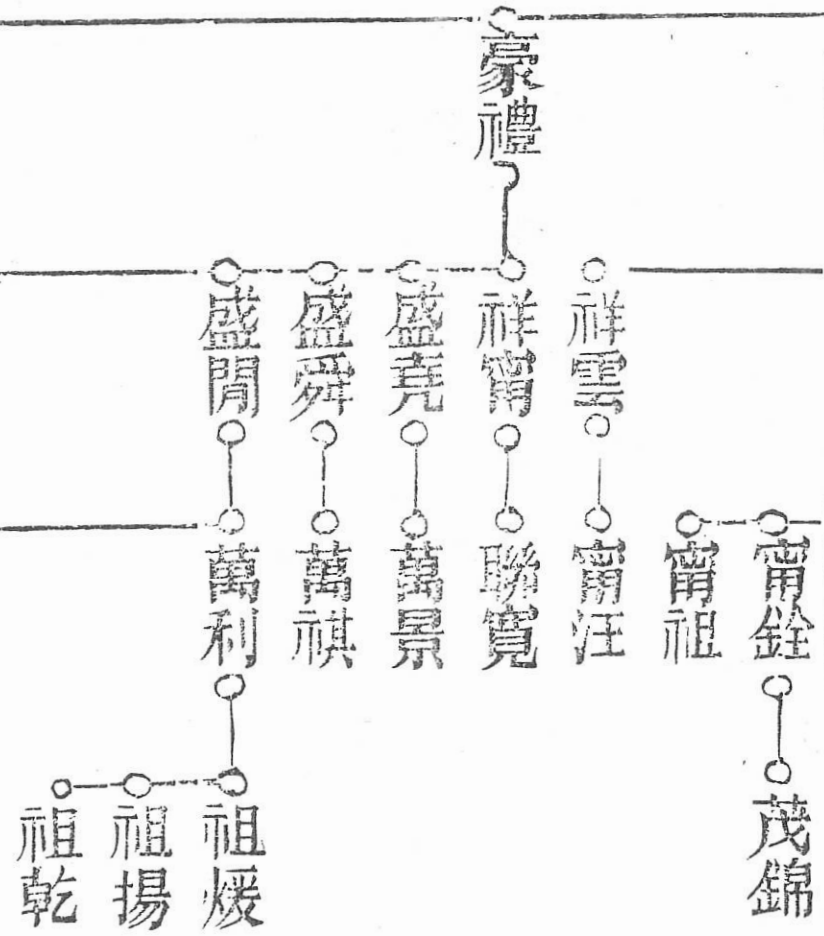 豪禮
祥雲
祥甯
盛堯
盛舜
盛閒
甯銓
甯祖
甯汪
聯寬
萬景
萬祺
萬利
茂錦
祖煖
祖揚
祖乾